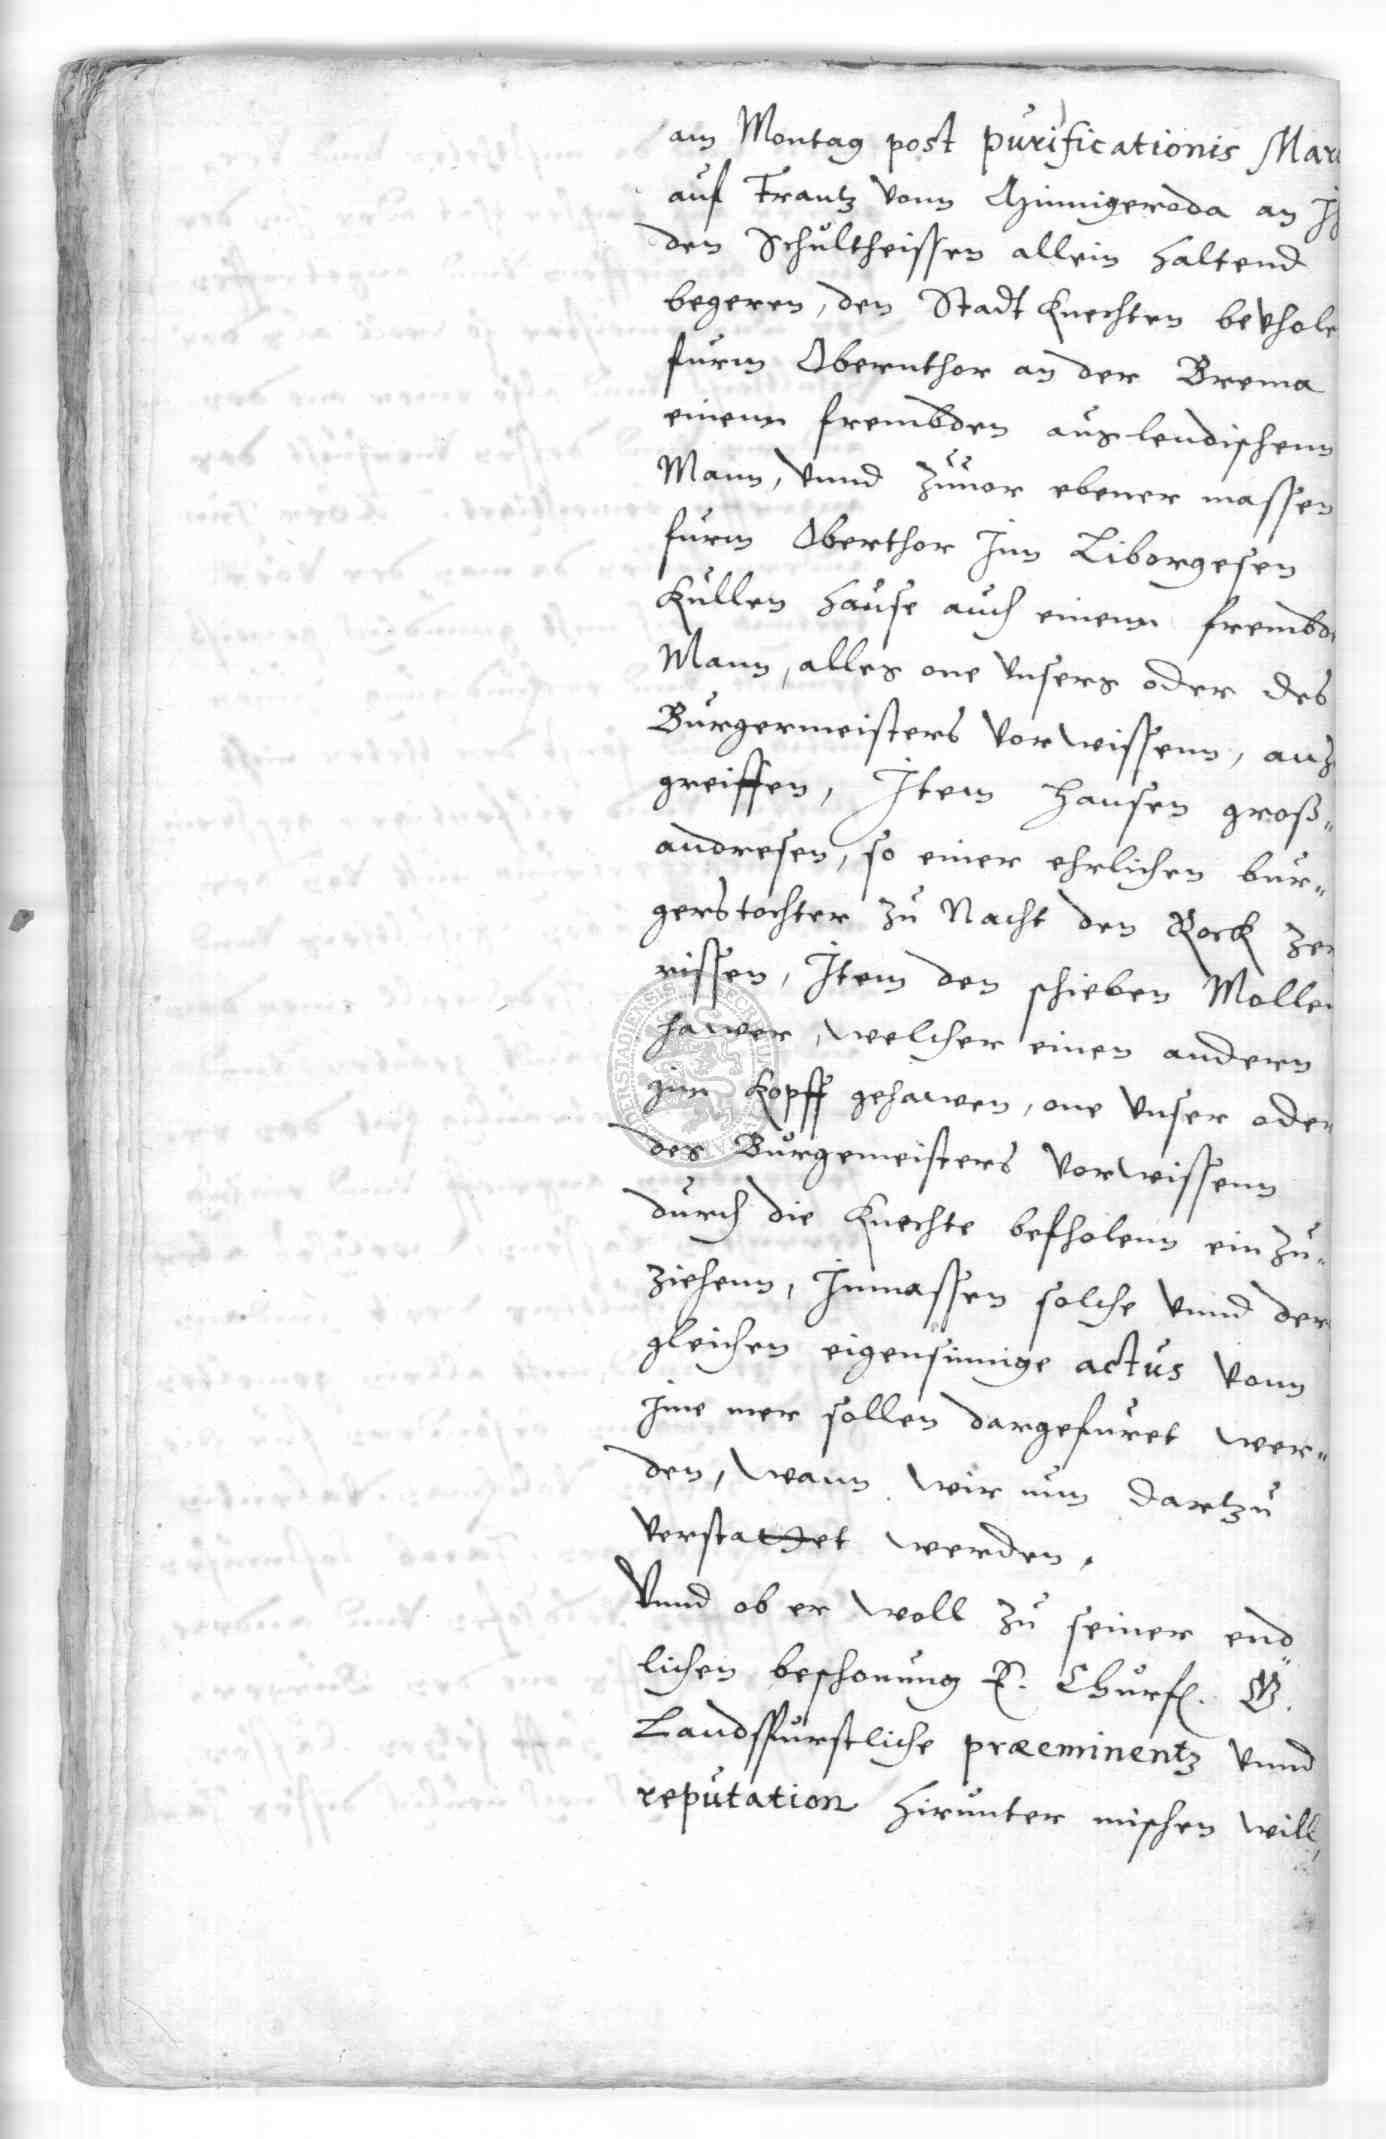 am Montag post purificationis Mari
auf Frantz vonn Minnigeroda an Ih
den Schultheissen allein haltend
begeren, den Stadt Knechten bevhole
furm Obernthor an der Brema
einenn frembden auslendischenn
Mann, vnnd zuuor ebener massen
furm Oberthor Inn Liborgesen
Kullen hause auch einenn frembde
Mann, alles one vnsers oder des
Burgermeisters vorwissenn, anz
greiffen, Item Hansen groß„
andresen, so einer ehrlichen bur„
gerstochter zu Nacht den Rock zer
rissen, Item den schieben Mollen
hawer, welcher einen andern
Inn Kopff gehawen, one vnser oder
des Burgemeisters vorwissenn
durch die Knechte befholenn ein zu„
ziehenn, Inmassen solche vnnd der
gleichen eigensinnige actus vonn
Ime mer sollen dargefuret wer„
den, wann wir nun dartzu
verstattet werden.
Vnnd ob er woll zu seiner end„
lichen beschonung E. Churf. G.
Landsfurstliche præeminentz vnnd
reputation hirunter mischen will,